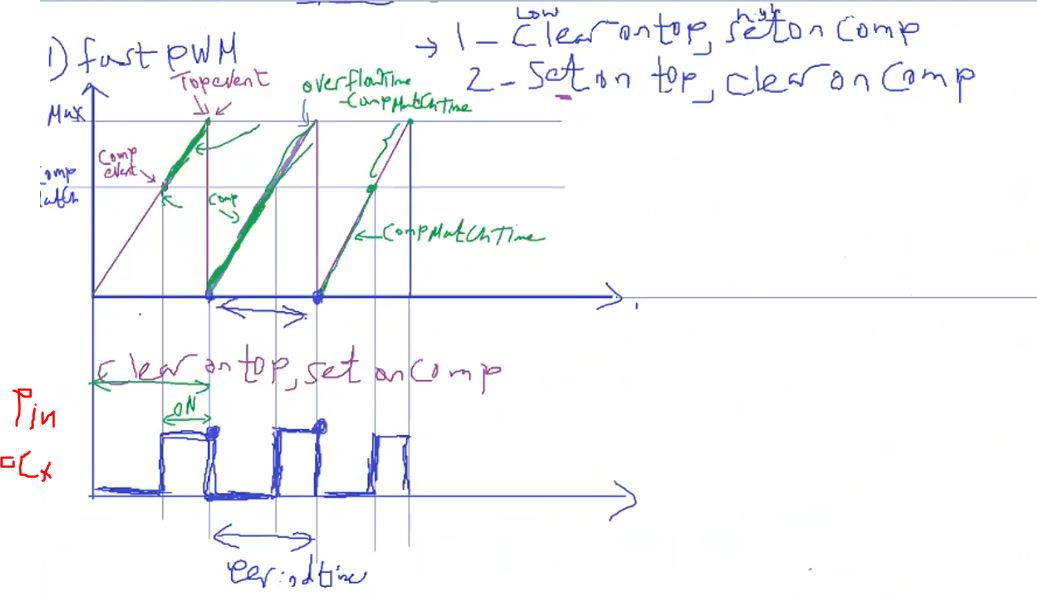 Low
high
1) fast PWM
→ 1 - Clear on top, set on Comp
2 - Set on top, clear on Comp
Top event
overflowTime
-CompMatchTime
Max
Comp
event
omp
atch
Comp
← CompMatchTime
Clear on top, set on Comp
ON
Pin
OCx
Period time